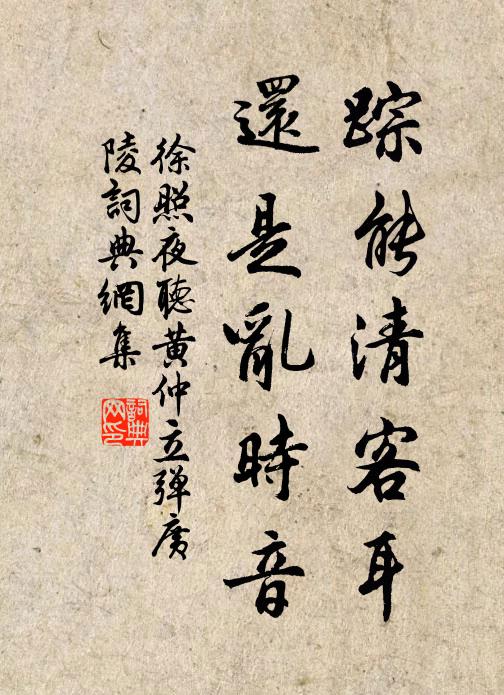 踪能清客耳
還是亂時音
徐照夜聽黄仲立彈廣
陵詞典網集
詞典
网印